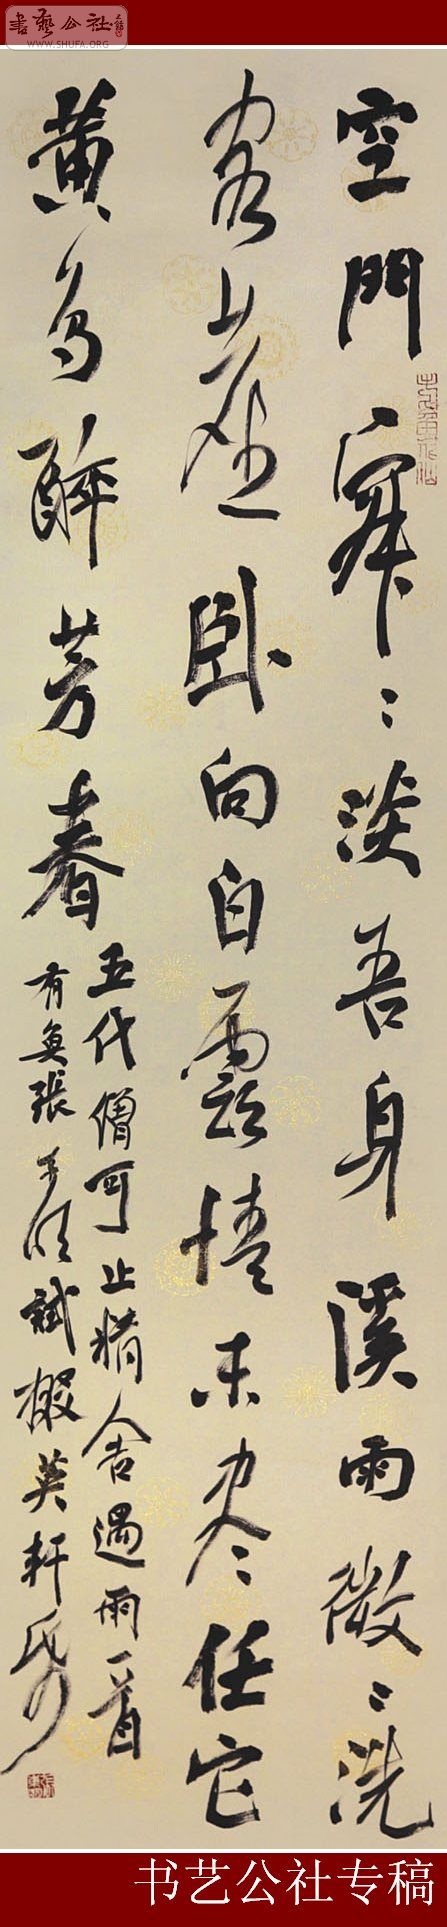 書藝公社
WWW.SHUFA.ORG
空門寂〻淡吾身溪雨微〻洗
客塵臥向白雲情未盡任它
黃鳥醉芳春
五代僧可止精舍遇雨一首
張 試掇英軒
书艺公社专稿